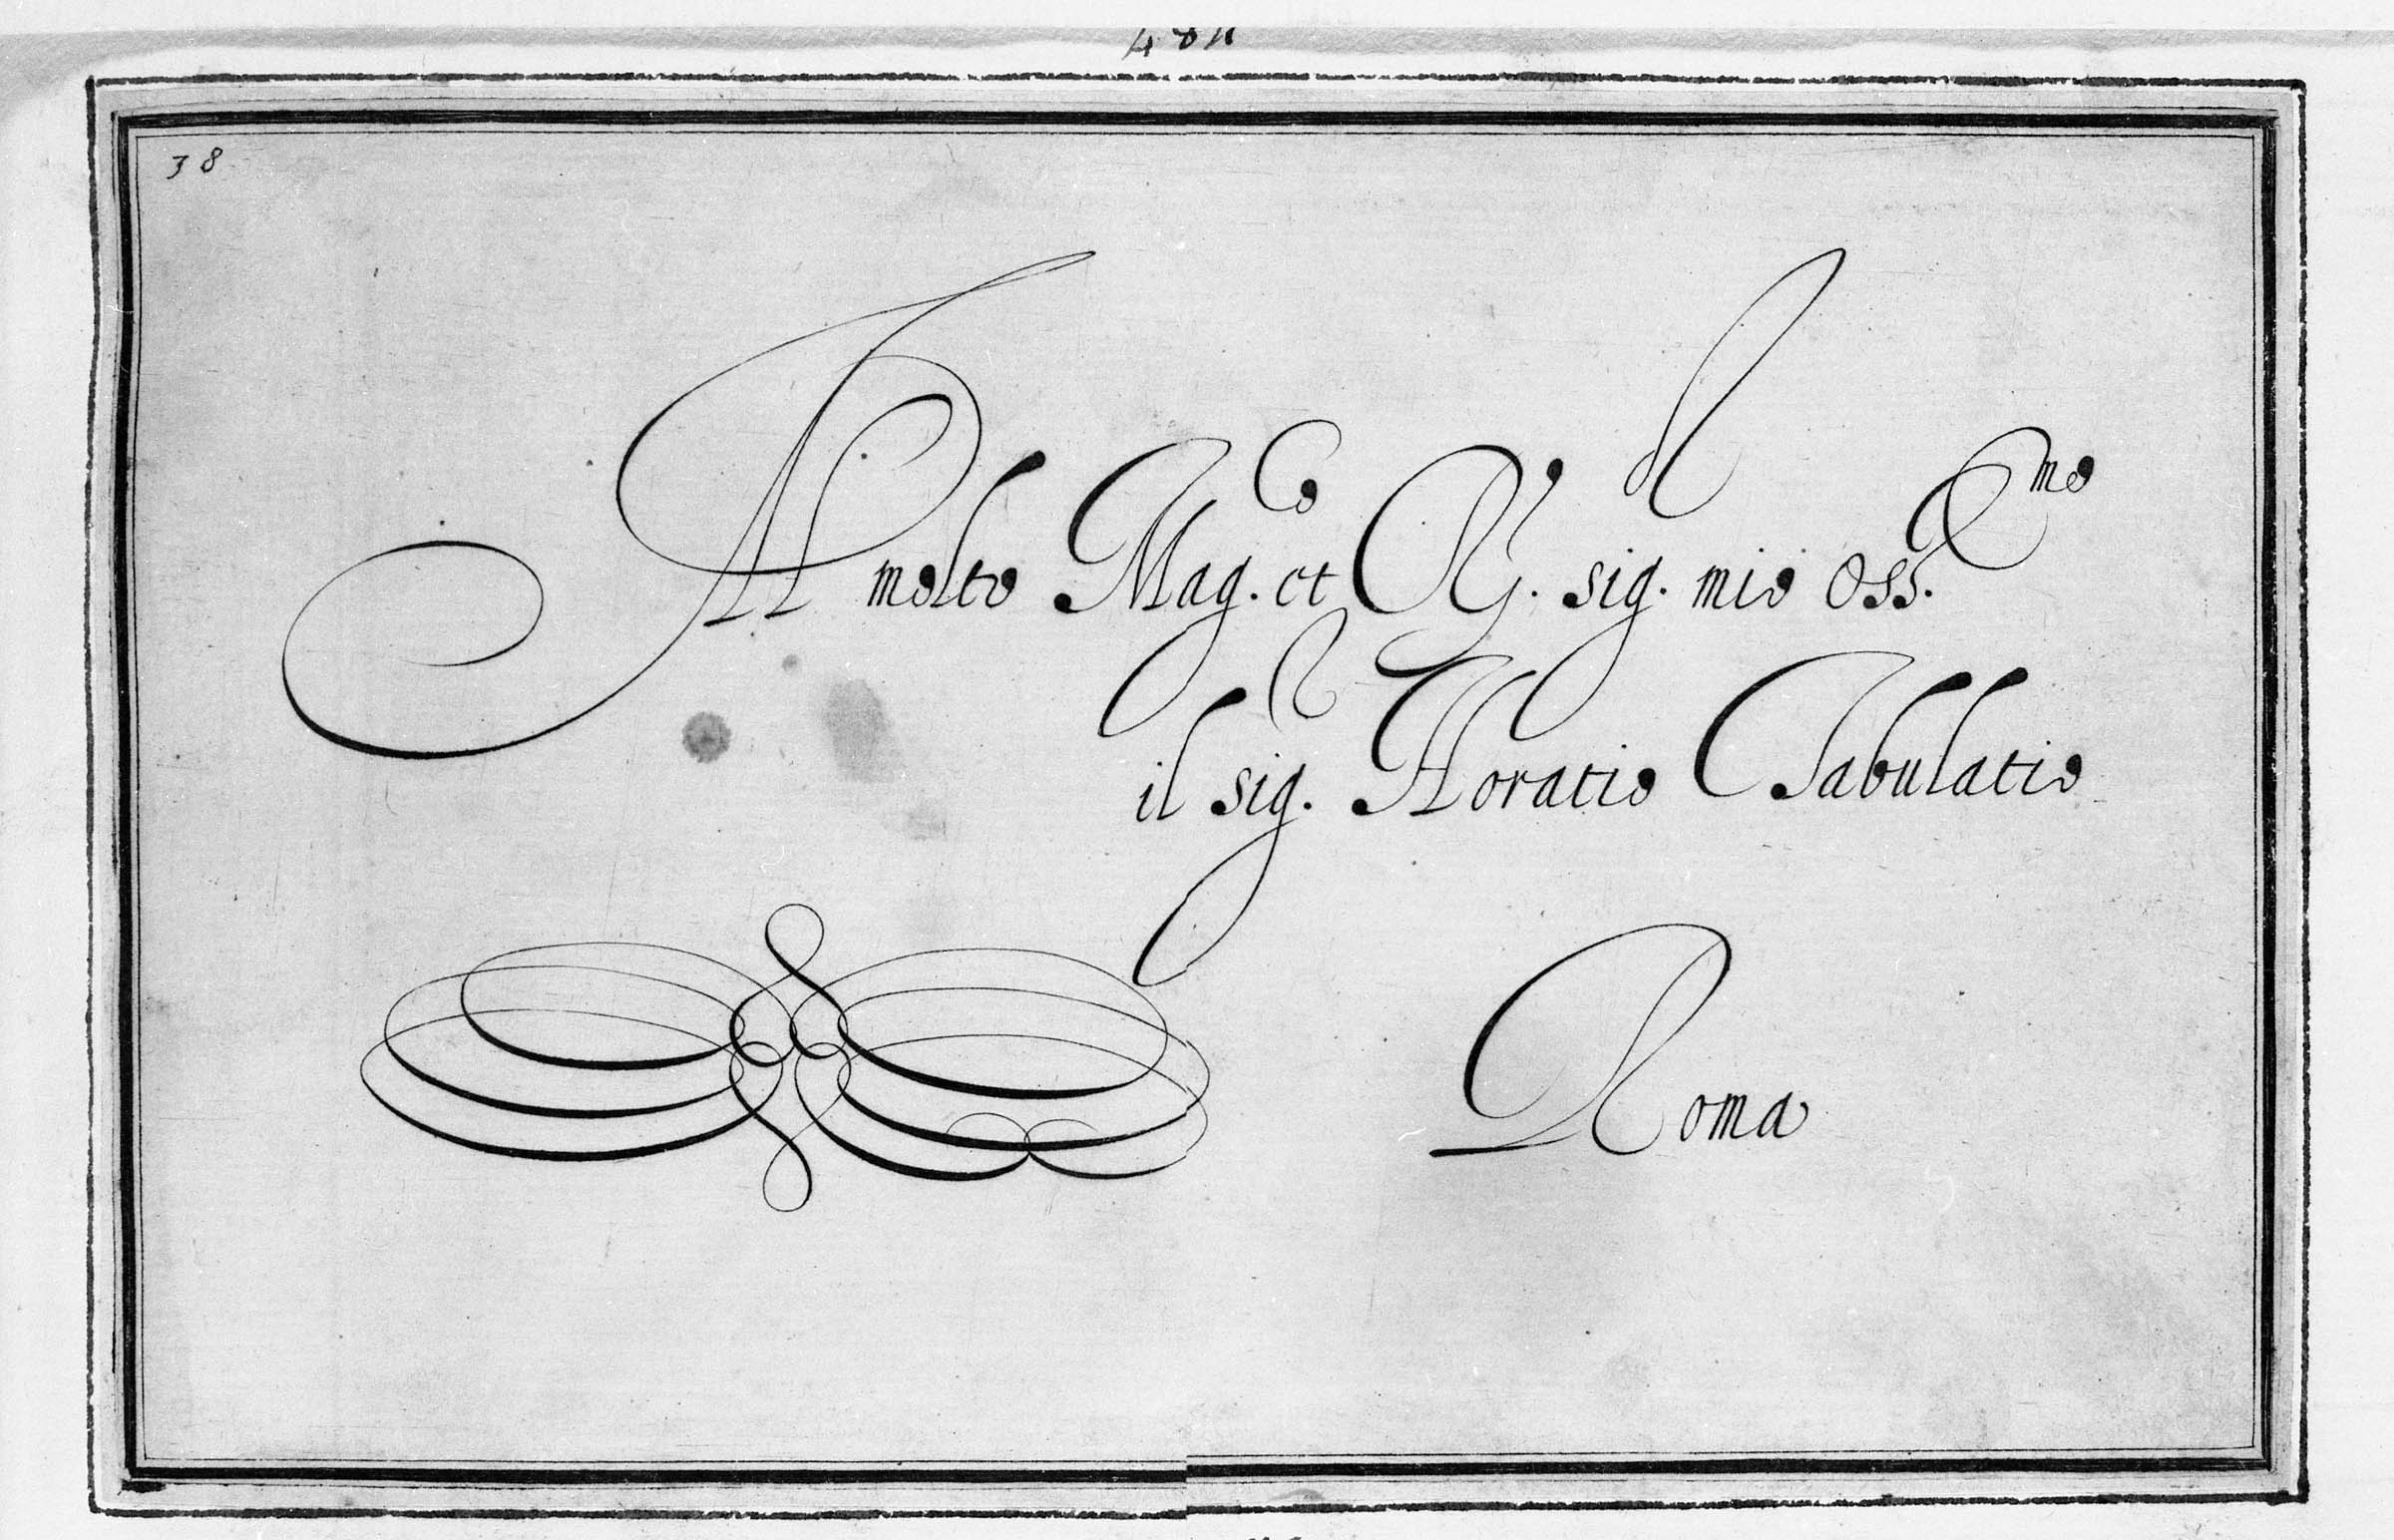 38
Al molto Mag.co et R. sig. mio Oss.mo
il sig. Horatio Tabulatio
Roma